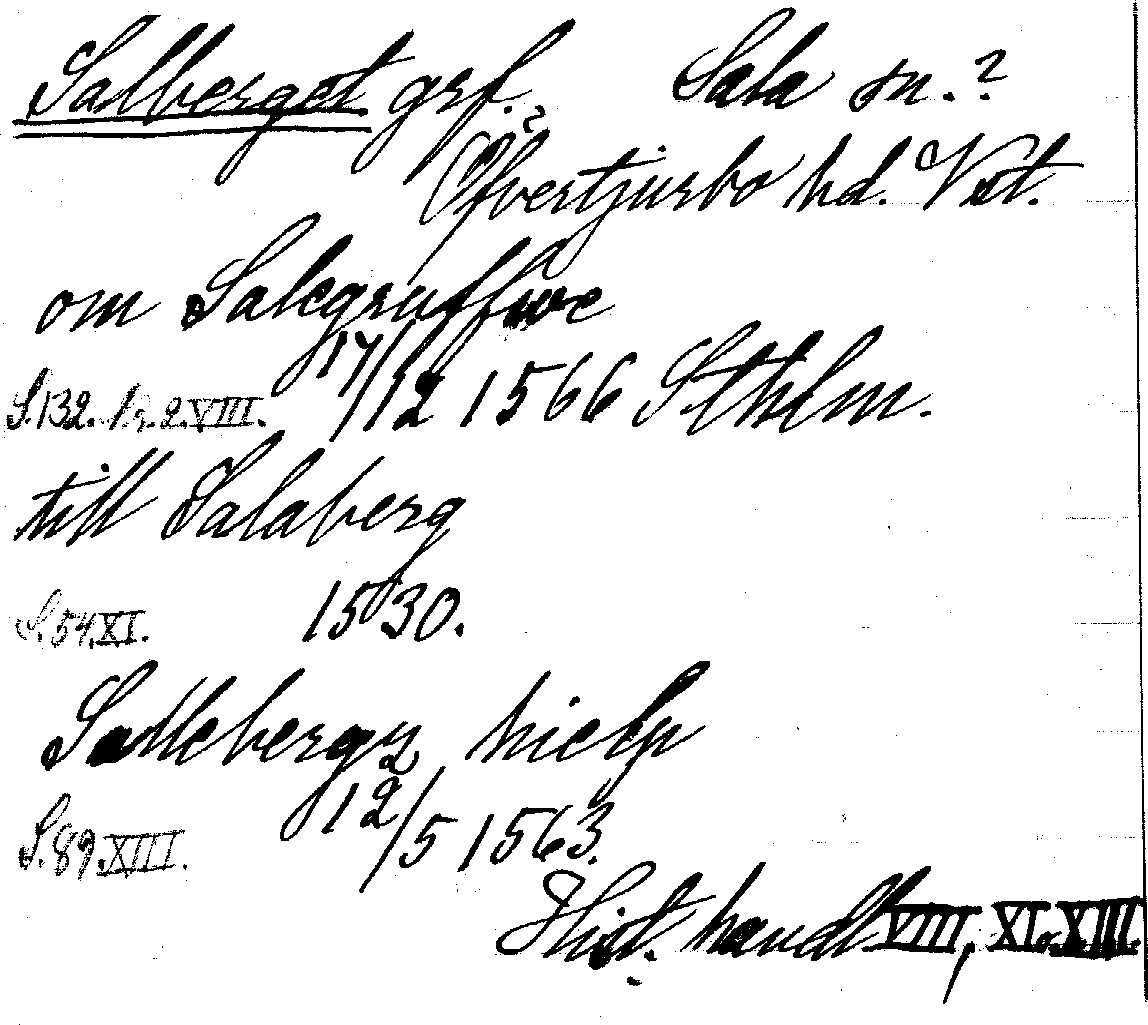 Salberget grf. Sala sn.?
Öfvertjurbo hd. Vst.
om Salegruffwe
S.132. Nr. 2. VIII. 17/12 1566 Sthlm.
till Salaberg
S.54.XI. 1530.
Sallebergz hielp
S.89.XIII. 12/5 1563.
Hist. handl VIII, XI. XIII.